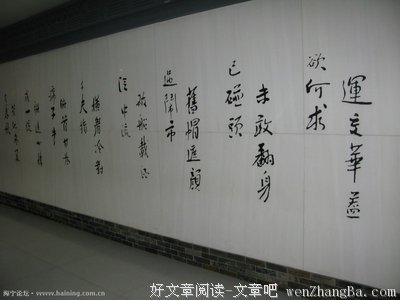 運交華蓋
欲何求
未敢翻身
已碰頭
舊帽遮顏
過鬧市
破船載酒
泛中流
橫眉冷對
千夫指
俯首甘为
孺子牛
躲進小樓
成一統
春秋
海宁论坛 - www.haining.com.cn
好文章阅读-文章吧 wenZhangBa.com